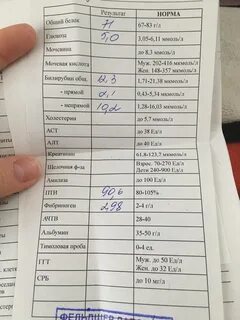 Результат НОРМА
Общий белок 71 67-83 г/л
Глюкоза 5,0 3,05-6,11 ммоль/л
Мочевина до 8,3 ммоль/л
Мочевая кислота Муж. 202-416 мкмоль/л
Жен. 148-357 мкмоль/л
Билирубин общ. 12,3 1,71-21,38 мкмоль/л
- прямой 2,1 0,43-5,34 мкмоль/л
- непрямой 10,2 1,28-16,03 мкмоль/л
Холестерин до 5,7 ммоль/л
АСТ до 38 Ед/л
АЛТ до 40 Ед/л
Креатинин 61,8-123,7 мкмоль/л
Щелочная ф-за Взрос. 70-270 Ед/л
Дети 240-900 Ед/л
Амилаза до 100 Ед/л
ПТИ 90,6 80-105%
Фибриноген 2,98 2-4 г/л
АЧТВ 28-40
Альбумин 35-50 г/л
Тимоловая проба 0-4 ед.
ГГТ Муж. до 50 Ед/л
Жен. до 32 Ед/л
СРБ до 10 мг/л